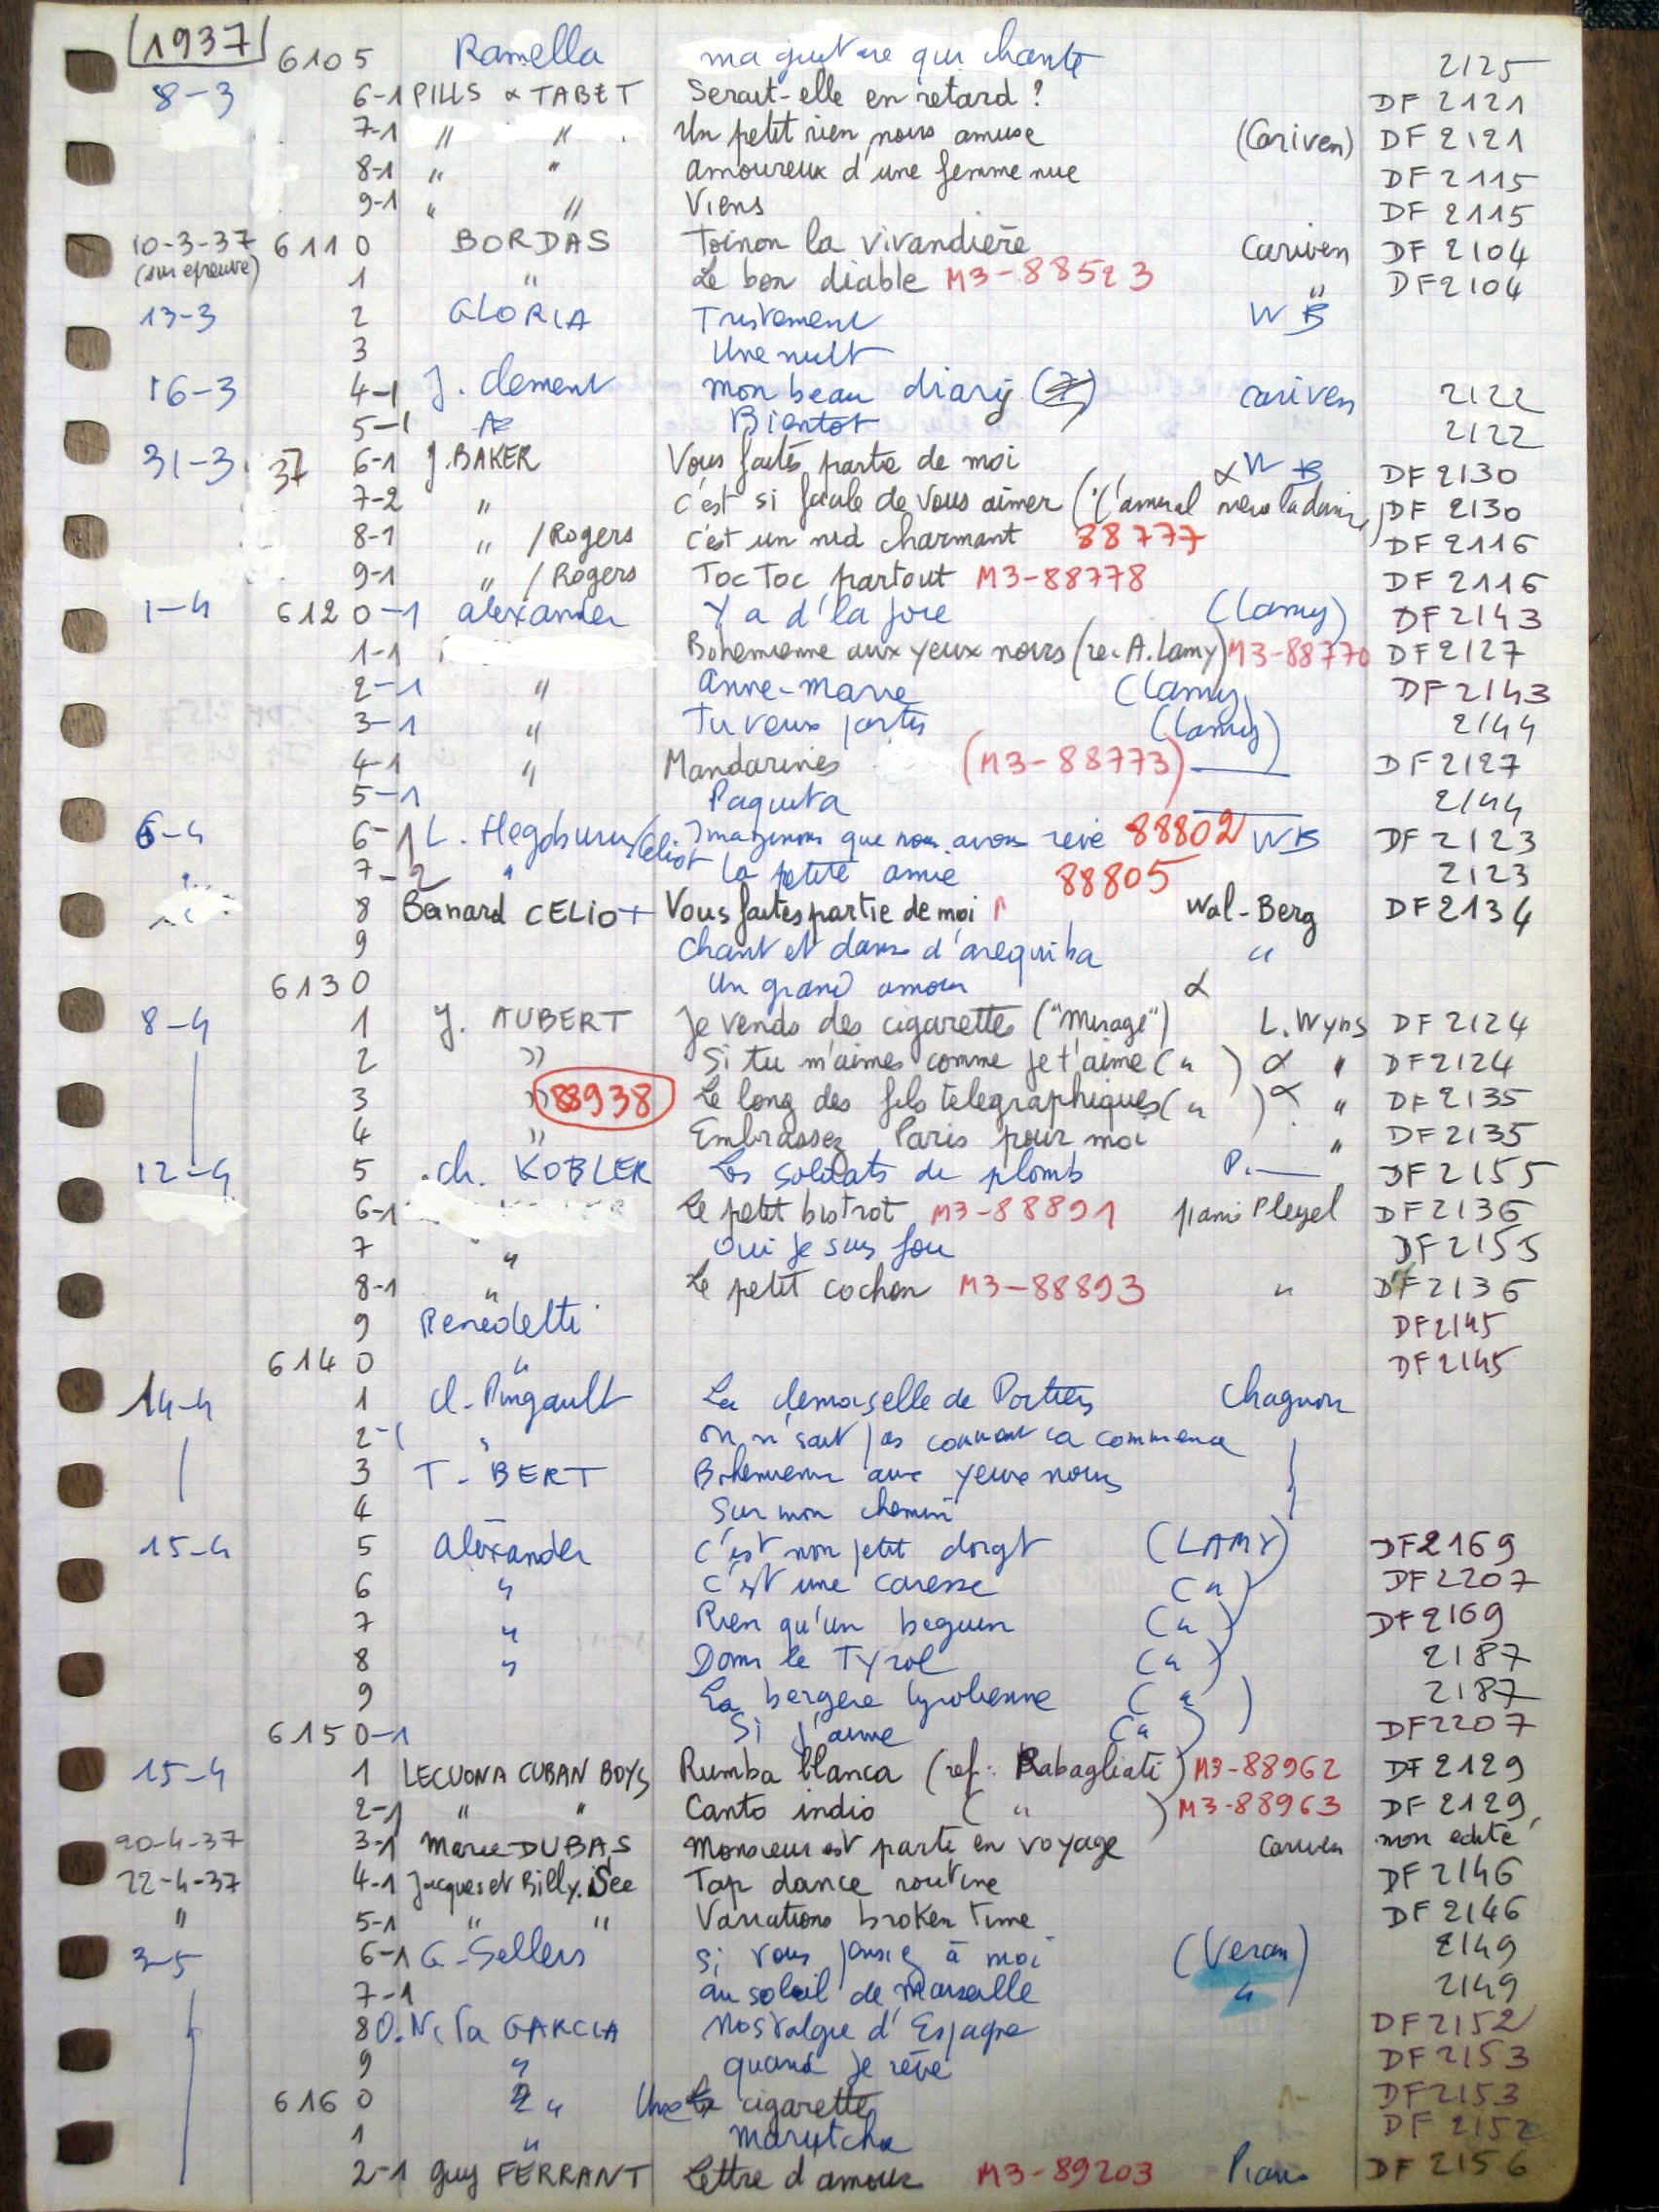 1937 6105 Ramella ma guitare qui chante 2125
8-3 6-1 PILLS & TABET Serait-elle en retard ? DF 2121
7-1 " " Un petit rien nous amuse (Cariven) DF 2121
8-1 " " amoureux d'une femme nue DF 2115
9-1 " " Viens DF 2115
10-3-37 6110 BORDAS Toinon la vivandière Cariven DF 2104
(sur epreuve) 1 " Le bon diable M3-88523 " DF2104
13-3 2 GLORIA Tristement WB
3 Une nuit
16-3 4-1 J. Clement mon beau cariven 2122
5-1 Bientot 2122
31-3 37 6-1 J. BAKER Vous faites partie de moi α W B DF 2130
7-2 " c'est si facile de vous aimer ("l'amiral DF 2130
8-1 " / Rogers c'est un nid charmant 88777 DF 2116
9-1 " / Rogers Toc Toc partout M3-88778 DF 2116
1-4 6120-1 alexander Y a d'la joie (Lamy) DF 2143
1-1 Bohemienne aux yeux noirs (re. A. Lamy) M3-88770 DF 2127
2-1 " anne-marie (Lamy) DF 2143
3-1 " Tu veux partir (Lamy) 2144
4-1 " Mandarines (M3-88773) DF 2127
5-1 Paquita 2144
6-4 6-1 L. Hegoburu/Celiot Imaginons que nous avons rêvé 88802 WB DF 2123
7-2 " La petite amie 88805 2123
8 Bernard CELIOT Vous faites partie de moi Wal-Berg DF2134
9 Chant et danse d'arequiba "
6130 Un grand amour α
8-4 1 J. AUBERT Je vends des cigarettes ("Mirage") L. Wyns DF 2124
2 " Si tu m'aimes comme je t'aime ( " ) α " DF2124
3 " 88938 Le long des fils telegraphiques ( " ) α " DF 2135
4 " Embrassez Paris pour moi " DF 2135
12-4 5 ch. KOBLER Les soldats de plomb P. DF 2155
6-1 Le petit bistrot M3-88891 piano Pleyel DF2136
7 " Oui je suis fou DF 2155
8-1 " Le petit cochon M3-88893 " DF2136
9 Benedetti DF2145
6140 " DF2145
14-4 1 Cl. Pingault La demoiselle de Poitiers Chagnon
2-1 " on n'sait pas comment ca commence
3 T. BERT Bohemienne aux yeux noirs
4 Sur mon chemin
15-4 5 alexander C'est mon petit doigt (LAMY) DF2169
6 " C'est une caresse ( " ) DF2207
7 " Rien qu'un beguin ( " ) DF 2169
8 " Dans le Tyrol ( " ) 2187
9 La bergere tyrolienne ( " ) 2187
6150-1 Si j'aime ( " ) DF2207
15-4 1 LECUONA CUBAN BOYS Rumba blanca (ref: Rabagliati) M3-88962 DF 2129
2-1 " " Canto indio ( " ) M3-88963 DF 2129
20-4-37 3-1 Marie DUBAS Monsieur est parti en voyage Cariven non edité
22-4-37 4-1 Jacques et Billy. See Tap dance routine DF 2146
" 5-1 " " Variations broken time DF 2146
3-5 6-1 G. Sellers Si vous pensiez à moi (Veran) 2149
7-1 au soleil de Marseille " 2149
8 O. Nita GARCIA Nostalgie d'Espagne DF2152
9 " quand je rêve DF 2153
6160 " Une cigarette DF2153
1 " Marutcha DF 2152
2-1 guy FERRANT Lettre d'amour M3-89203 Piano DF 2156